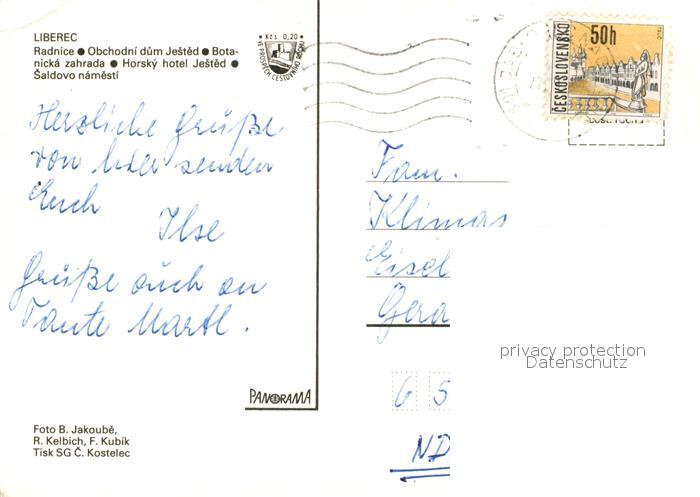 LIBEREC
Radnice ● Obchodní dům Ještěd ● Bota-
nická zahrada ● Horský hotel Ještěd ●
Šaldovo náměstí
Kčs 0,20
VE PROSPĚCH CESTOVNÍHO RUCHU
50h
ČESKOSLOVENSKO
Herzliche Grüße
von hier senden
Euch
Ilse
Grüße auch an
Tante Martl.
Fam.
Klimas
Eisel
Gera
privacy protection
Datenschutz
6 5
ND
PANORAMA
Foto B. Jakoubě,
R. Kelbich, F. Kubík
Tisk SG Č. Kostelec